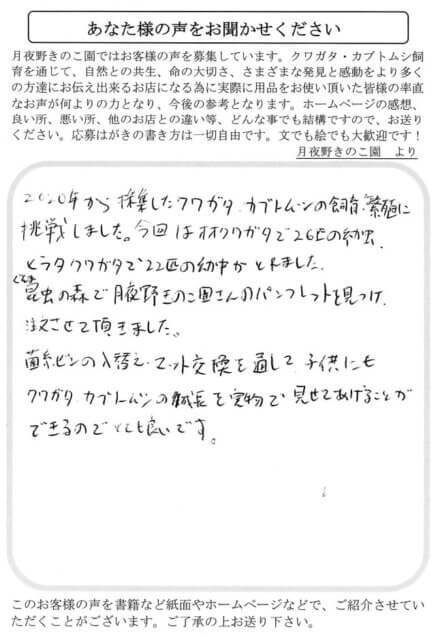 あなた様の声をお聞かせください
月夜野きのこ園ではお客様の声を募集しています。クワガタ・カブトムシ飼
育を通じて、自然との共生、命の大切さ、さまざまな発見と感動をより多く
の方達にお伝え出来るお店になる為に実際に用品をお使い頂いた皆様の率直
なお声が何よりの力となり、今後の参考となります。ホームページの感想、
良い所、悪い所、他のお店との違い等、どんな事でも結構ですので、お送り
ください。応募はがきの書き方は一切自由です。文でも絵でも大歓迎です！
月夜野きのこ園 より
2020年から採集したクワガタ、カブトムシの飼育、繁殖に
挑戦しました。今回はオオクワガタで26匹の幼虫、
ヒラタクワガタで22匹の幼虫がとれました。
ぐんま
昆虫の森で月夜野きのこ園さんのパンフレットを見つけ、
注文させて頂きました。
菌糸ビンの入替え、マット交換を通して子供にも
クワガタ カブトムシの成長を実物で見せてあげることが
できるのでとても良いです。
このお客様の声を書籍など紙面やホームページなどで、ご紹介させてい
ただくことがございます。ご了承の上お送り下さい。